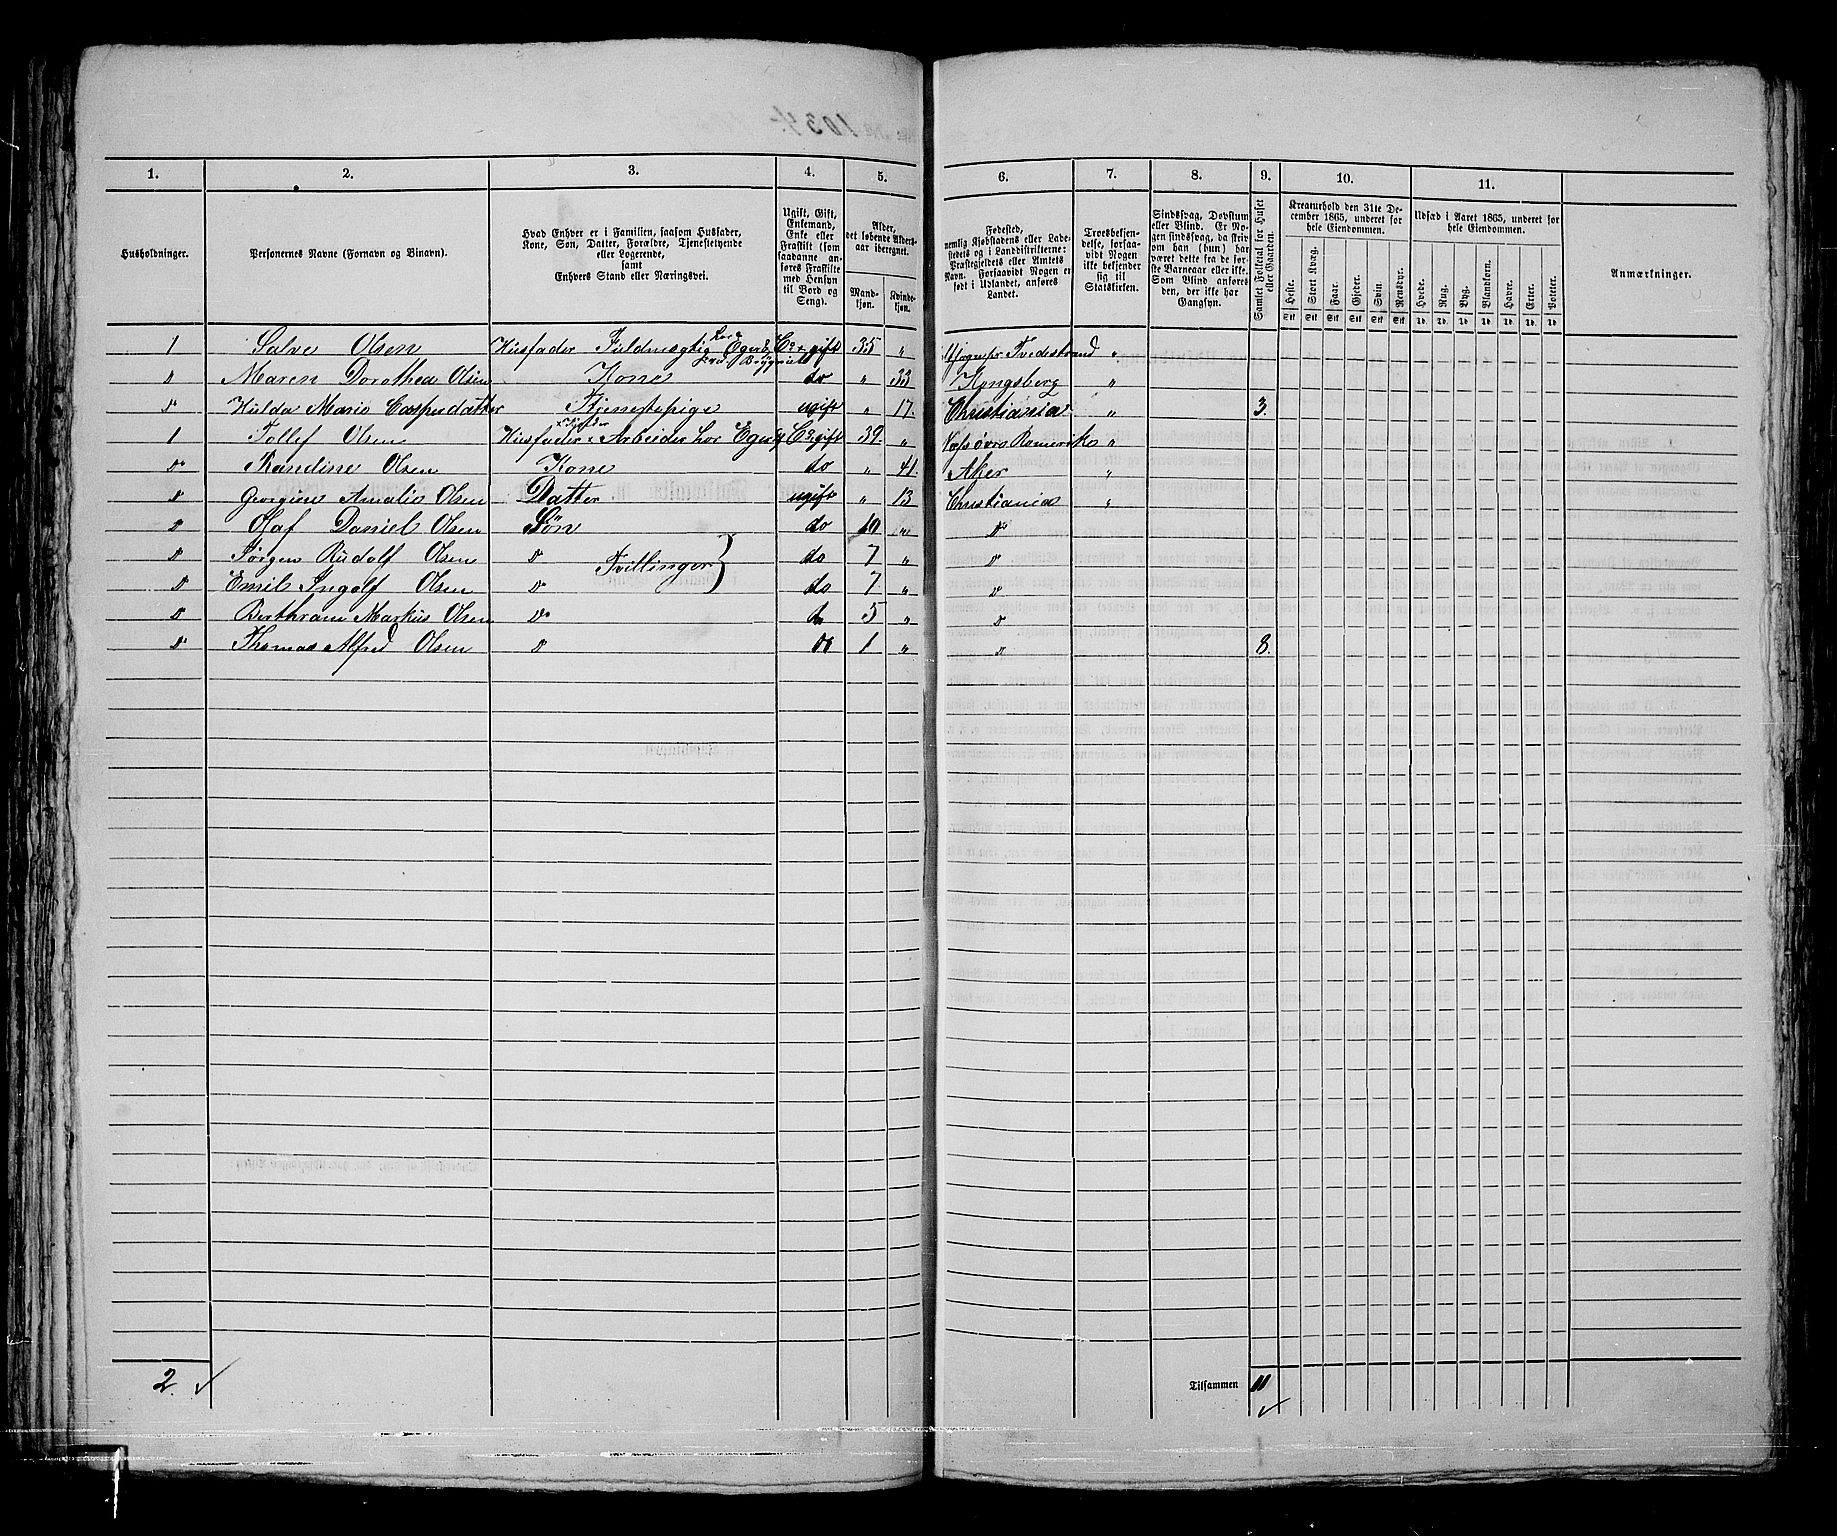 1034
1. 2. 3. 4. 5. 6. 7. 8. 9. 10. 11.
Husholdninger.
Personernes Navne (Fornavn og Binavn).
Hvad Enhver er i Familien, saasom Husfader,
Kone, Søn, Datter, Forældre, Tjenestetyende
eller Logerende,
samt
Enhvers Stand eller Næringsvei.
Ugift, Gift,
Enkemand,
Enke eller
Fraskilt (som
saadanne an-
føres Fraskilte
med Hensyn
til Bord og
Seng).
Alder,
det løbende Alders-
aar iberegnet.
Mand-
kjøn.
Kvinde-
kjøn.
Fødested,
nemlig Kjøbstadens eller Lade-
stedets og i Landdistrikterne:
Præstegjeldets eller Amtets
Navn. Forsaavidt Nogen er
født i Udlandet, anføres
Landet.
Troesbekjen-
delse, forsaa-
vidt Nogen
ikke bekjender
sig til
Statskirken.
Sindssvag, Døvstum
eller Blind. Er No-
gen sindssvag, da skriv
om han (hun) har
været dette fra de før-
ste Barneaar eller ikke.
Som Blind anføres
den, der ikke har
Gangsyn.
Samlet Folketal for Huset
eller Gaarden.
Kreaturhold den 31te De-
cember 1865, underet for
hele Eiendommen.
Heste. Stort Kvæg. Faar. Gjeder. Svin. Rensdyr.
Stk Stk Stk Stk Stk Stk
Udsæd i Aaret 1865, underet for
hele Eiendommen.
Hvede. Rug. Byg. Blandkorn. Havre. Erter. Poteter.
Td. Td. Td. Td. Td. Td. Td.
Anmærkninger.
1 Salve Olsen Husfader Fuldmægtig Eger & Co gift 35 " Tvedestrand "
D Maren Dorothea Olsen Kone do " 33 Kongsberg "
D Hulda Marie Caspersdatter Tjenestepige ugift " 17. Christiania " 3.
1 Tollef Olsen Husfader Arbeider hos Eger & Co gift 39 " Romerike "
D Randine Olsen Kone do " 41 Aker "
D Georgine Amalie Olsen Datter ugift " 13 Christiania "
D Olaf Daniel Olsen Søn do 10 " D
D Jørgen Rudolf Olsen D Tvillinger do 7 " D
D Emil Ingolf Olsen D do 7 " D
D Berthram Markus Olsen D do 5 " D
D Thomas Alfred Olsen D D 1 " D 8.
2. Tilsammen 11